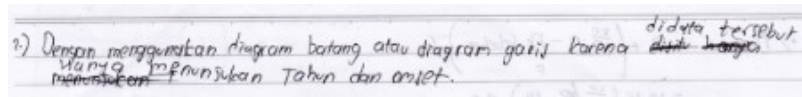 2.) Dengan menggunakan diagram batang atau diagram garis karena didata tersebut
hanya menunjukan Tahun dan omset.